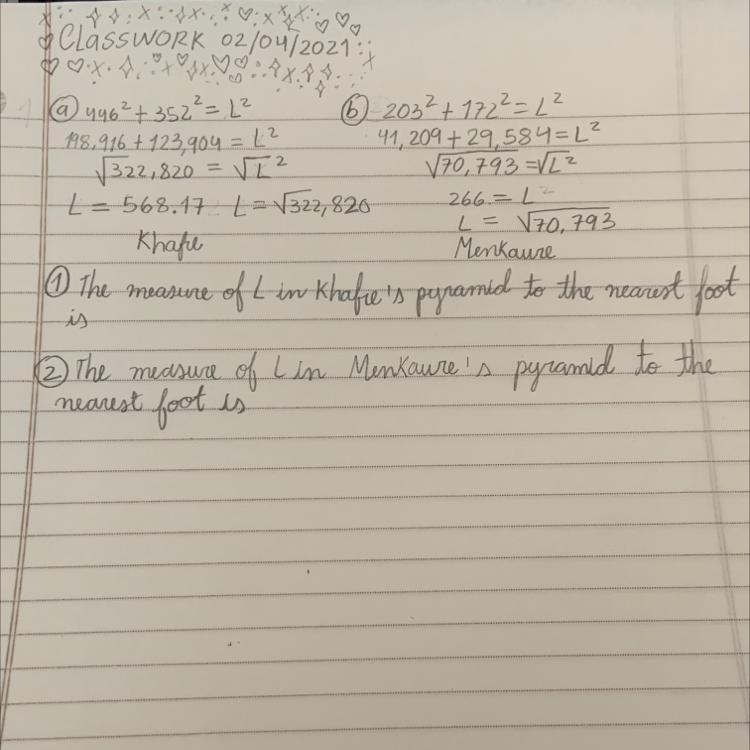 CLASSWORK 02/04/2021
ⓐ 446² + 352² = L²
198,916 + 123,904 = L²
√322,820 = √L²
L = 568.17 L = √322,820
Khafre
ⓑ 203² + 172² = L²
41,209 + 29,584 = L²
√70,793 = √L²
266 = L²
L = √70,793
Menkaure
① The measure of L in Khafre's pyramid to the nearest foot
is
② The measure of L in Menkaure's pyramid to the
nearest foot is